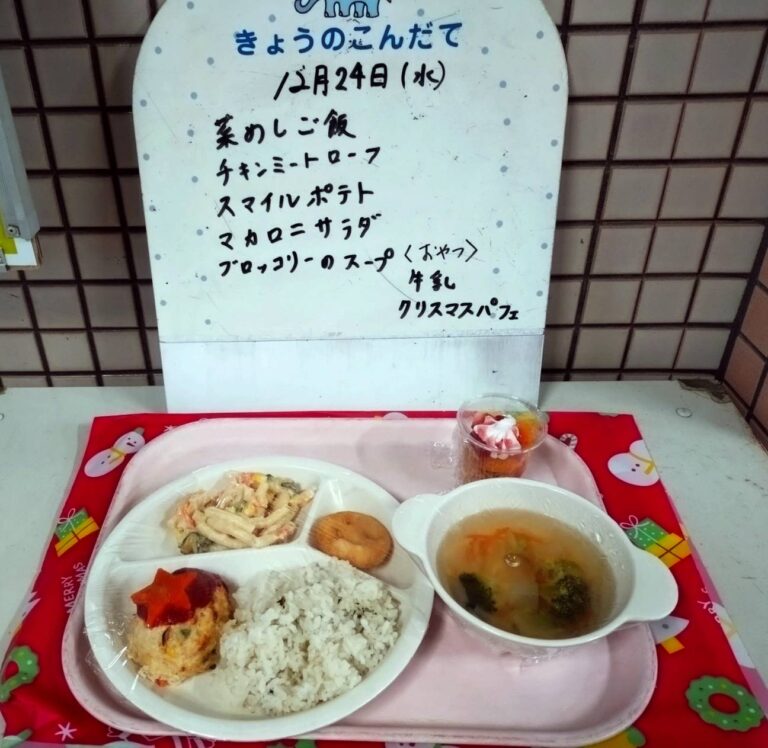 きょうのこんだて
12月24日(水)
菜めしご飯
チキンミートローフ
スマイルポテト
マカロニサラダ
ブロッコリーのスープ
〈おやつ〉
牛乳
クリスマスパフェ
MERRY